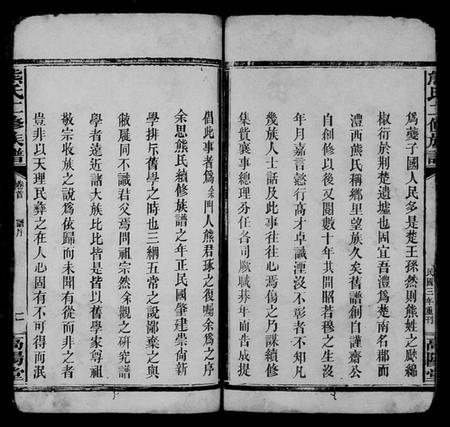 為夔子國人民多是楚王孫然則熊姓之縣綿
椒衍於荆楚遺墟也固宜吾澧為楚南名郡而
澧西熊氏稱鄉里望族久矣舊譜創自謹齋公
自創修以後又閱數十年其間昭若穆之生沒
年月嘉言懿行高才卓識湮沒不彰者不知凡
幾族人士話及此事往往心焉傷之乃謀續修
集貲襄事總理分任各司厥職棐年而告成提
民國三年重刊
高陽堂
熊氏二修族譜
倡此事者為余門人熊君琢之復囑余為之序
余思熊氏續修族譜之年正民國肇建崇尚新
學排斥舊學之時也三綱五常之說鄙棄之與
敝屣同不識君父焉問祖宗然余觀之研究譜
學者遠近諸大族比比皆是皆以舊學家尊祖
敬宗收族之說為依歸而未聞有從而非之者
豈非以天理民彝之在人心固有不可得而泯
熊氏二修族譜
卷首
高陽堂